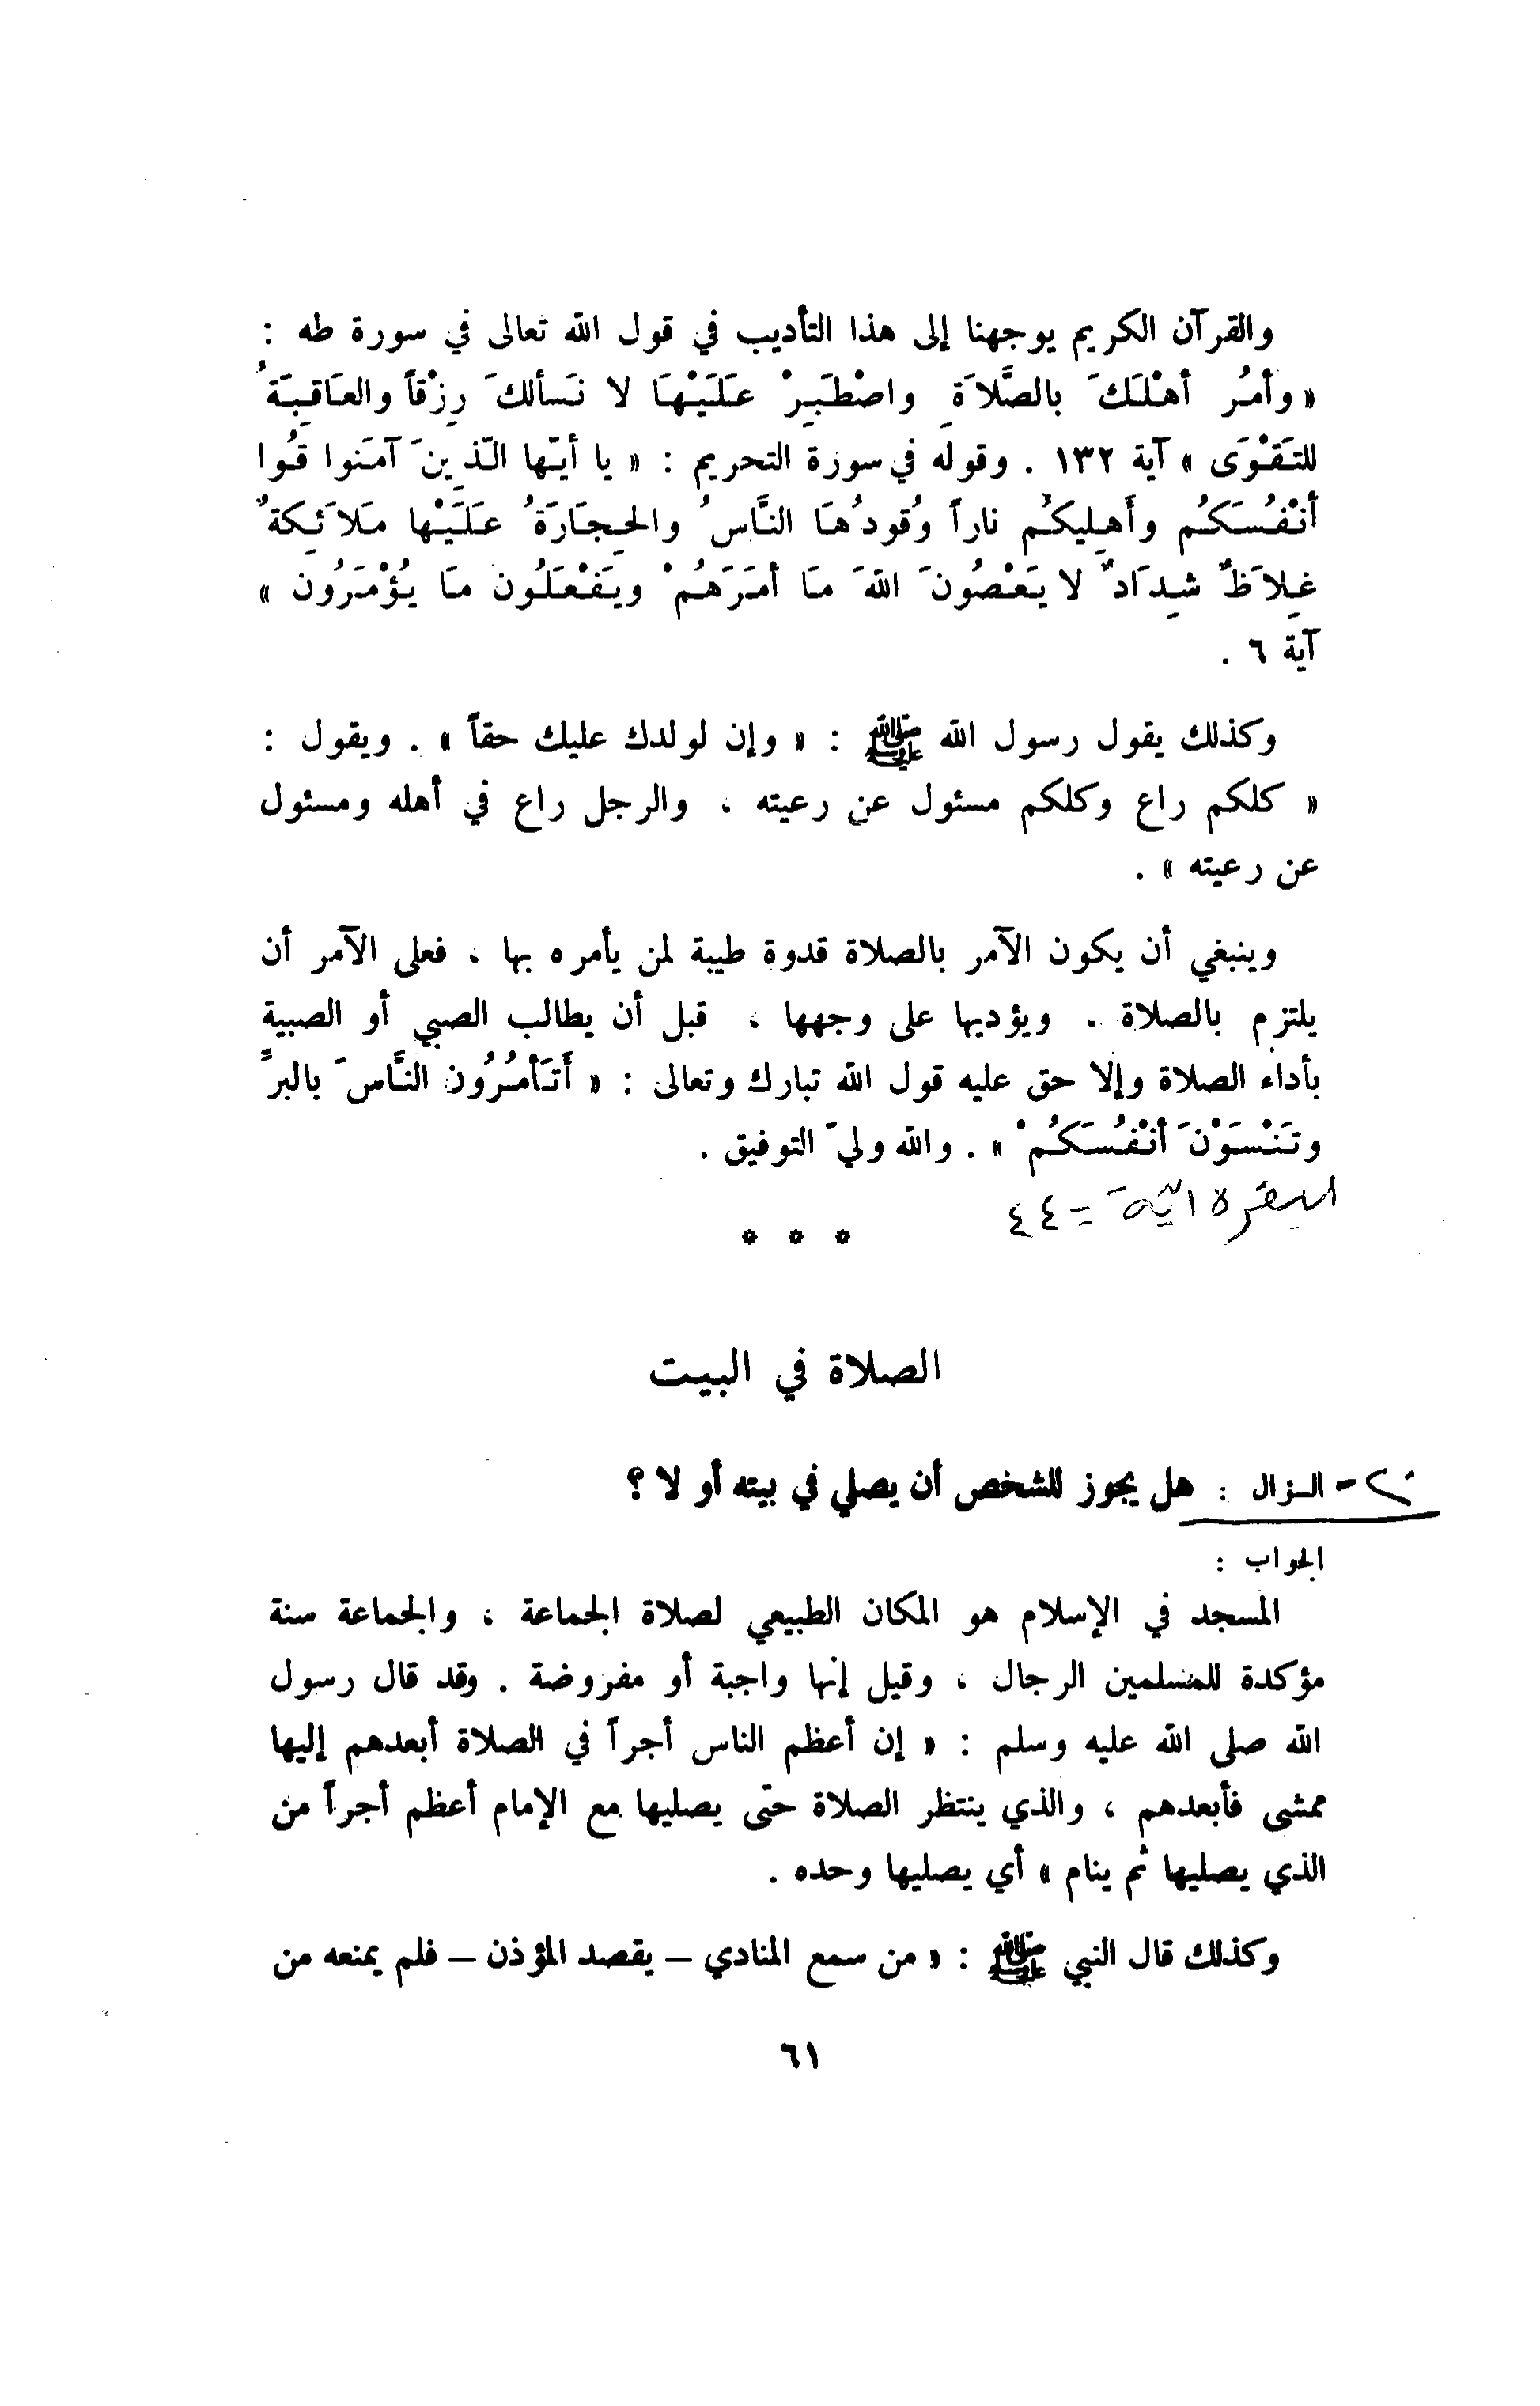 والقرآن الكريم يوجهنا إلى هذا التأديب في قول الله تعالى في سورة طه :
« وأمُر أهْلَكَ بالصَّلاَةِ واصْطَبِرْ عَلَيْهَا لا نَسألكَ رِزْقاً والعَاقِبَةُ
للتَقْوَى » آية ١٣٢ . وقوله في سورة التحريم : « يا أيّها الّذِينَ آمَنوا قُوا
أنْفُسَكُم وأَهِليكُم ناراً وُقودُهَا النَّاسُ والحِجَارَةُ عَلَيْها مَلاَئِكةٌ
غِلاَظٌ شِدَادٌ لا يَعْصُونَ اللهَ مَا أمَرَهُمْ ويَفْعَلُون مَا يُؤْمَرُون »
آية ٦ .
وكذلك يقول رسول الله ﷺ : « وإن لولدك عليك حقاً » . ويقول :
« كلكم راع وكلكم مسئول عن رعيته ، والرجل راع في أهله ومسئول
عن رعيته » .
وينبغي أن يكون الآمر بالصلاة قدوة طيبة لمن يأمره بها ، فعلى الآمر أن
يلتزم بالصلاة ، ويؤديها على وجهها ، قبل أن يطالب الصبي أو الصبية
بأداء الصلاة وإلا حق عليه قول الله تبارك وتعالى : « أَتَأمُرُون النَّاسَ بالبرِّ
وتَنْسَوْنَ أنْفُسَكُمْ » . والله وليّ التوفيق .
البقرة الآية = ٤٤
* * *
الصلاة في البيت
٢٠ - السؤال : هل يجوز للشخص أن يصلي في بيته أو لا ؟
الجواب :
المسجد في الإسلام هو المكان الطبيعي لصلاة الجماعة ، والجماعة سنة
مؤكدة للمسلمين الرجال ، وقيل إنها واجبة أو مفروضة . وقد قال رسول
الله صلى الله عليه وسلم : « إن أعظم الناس أجراً في الصلاة أبعدهم إليها
ممشى فأبعدهم ، والذي ينتظر الصلاة حتى يصليها مع الإمام أعظم أجراً من
الذي يصليها ثم ينام » أي يصليها وحده .
وكذلك قال النبي ﷺ : « من سمع المنادي – يقصد المؤذن – فلم يمنعه من
٦١